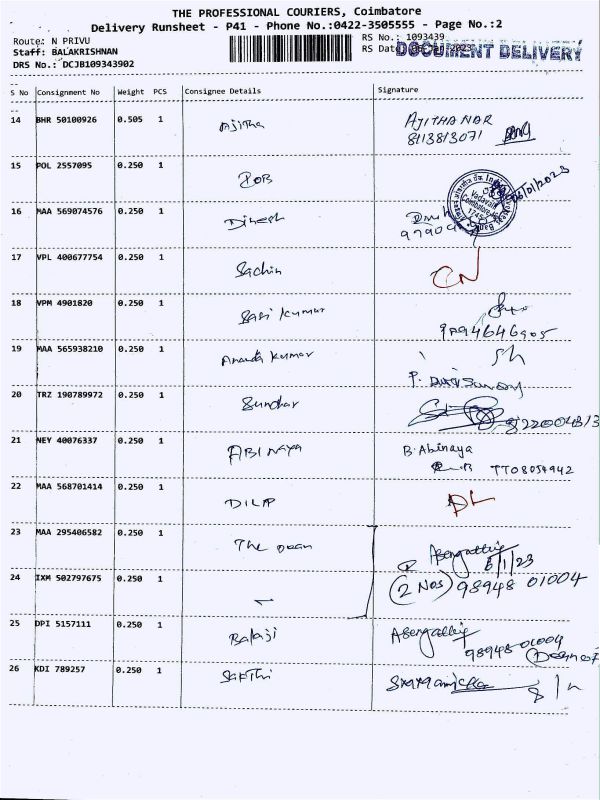 THE PROFESSIONAL COURIERS, Coimbatore
Delivery Runsheet - P41 - Phone No.:0422-3505555 - Page No.:2
Route: N PRIVU
RS No.: 1093439
Staff: BALAKRISHNAN
RS Dat
DOCUMENT DELIVERY
DRS No.: DCJB109343902
S No Consignment No Weight PCS Consignee Details Signature
14 BHR 50100926 0.505 1 Ajitha AJITHA NAR
8113813071
15 POL 2557095 0.250 1 BOB
06/01/2023
Vadavalli
16 MAA 569074576 0.250 1 Dinesh
17 VPL 400677754 0.250 1 Sachin CN
18 VPM 4901820 0.250 1 Sasi kumar
9894646905
19 MAA 565938210 0.250 1 Ananda kumar
20 TRZ 190789972 0.250 1 Sundhar
21 NEY 40076337 0.250 1 ABINAYA B. Abinaya
22 MAA 568701414 0.250 1 DILIP DL
23 MAA 295406582 0.250 1 The dean
6/1/23
24 IXM 502797675 0.250 1 (2 Nos) 98948 01004
25 DPI 5157111 0.250 1 Balaji
98948-01004
26 KDI 789257 0.250 1 Sakthi